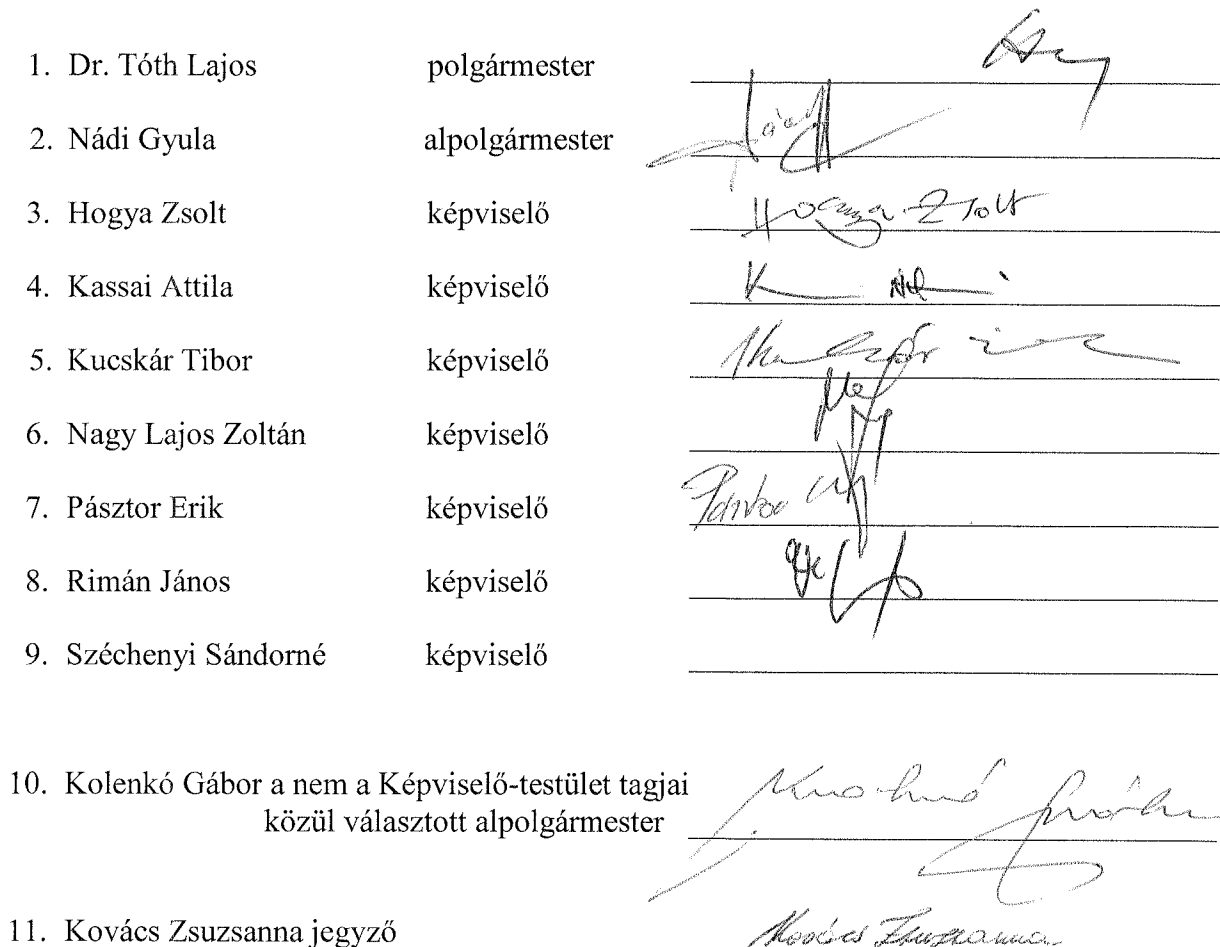 1. Dr. Tóth Lajos polgármester
2. Nádi Gyula alpolgármester
3. Hogya Zsolt képviselő Hogya Zsolt
4. Kassai Attila képviselő
5. Kucskár Tibor képviselő
6. Nagy Lajos Zoltán képviselő
7. Pásztor Erik képviselő
8. Rimán János képviselő
9. Széchenyi Sándorné képviselő
10. Kolenkó Gábor a nem a Képviselő-testület tagjai
közül választott alpolgármester
11. Kovács Zsuzsanna jegyző Kovács Zsuzsanna